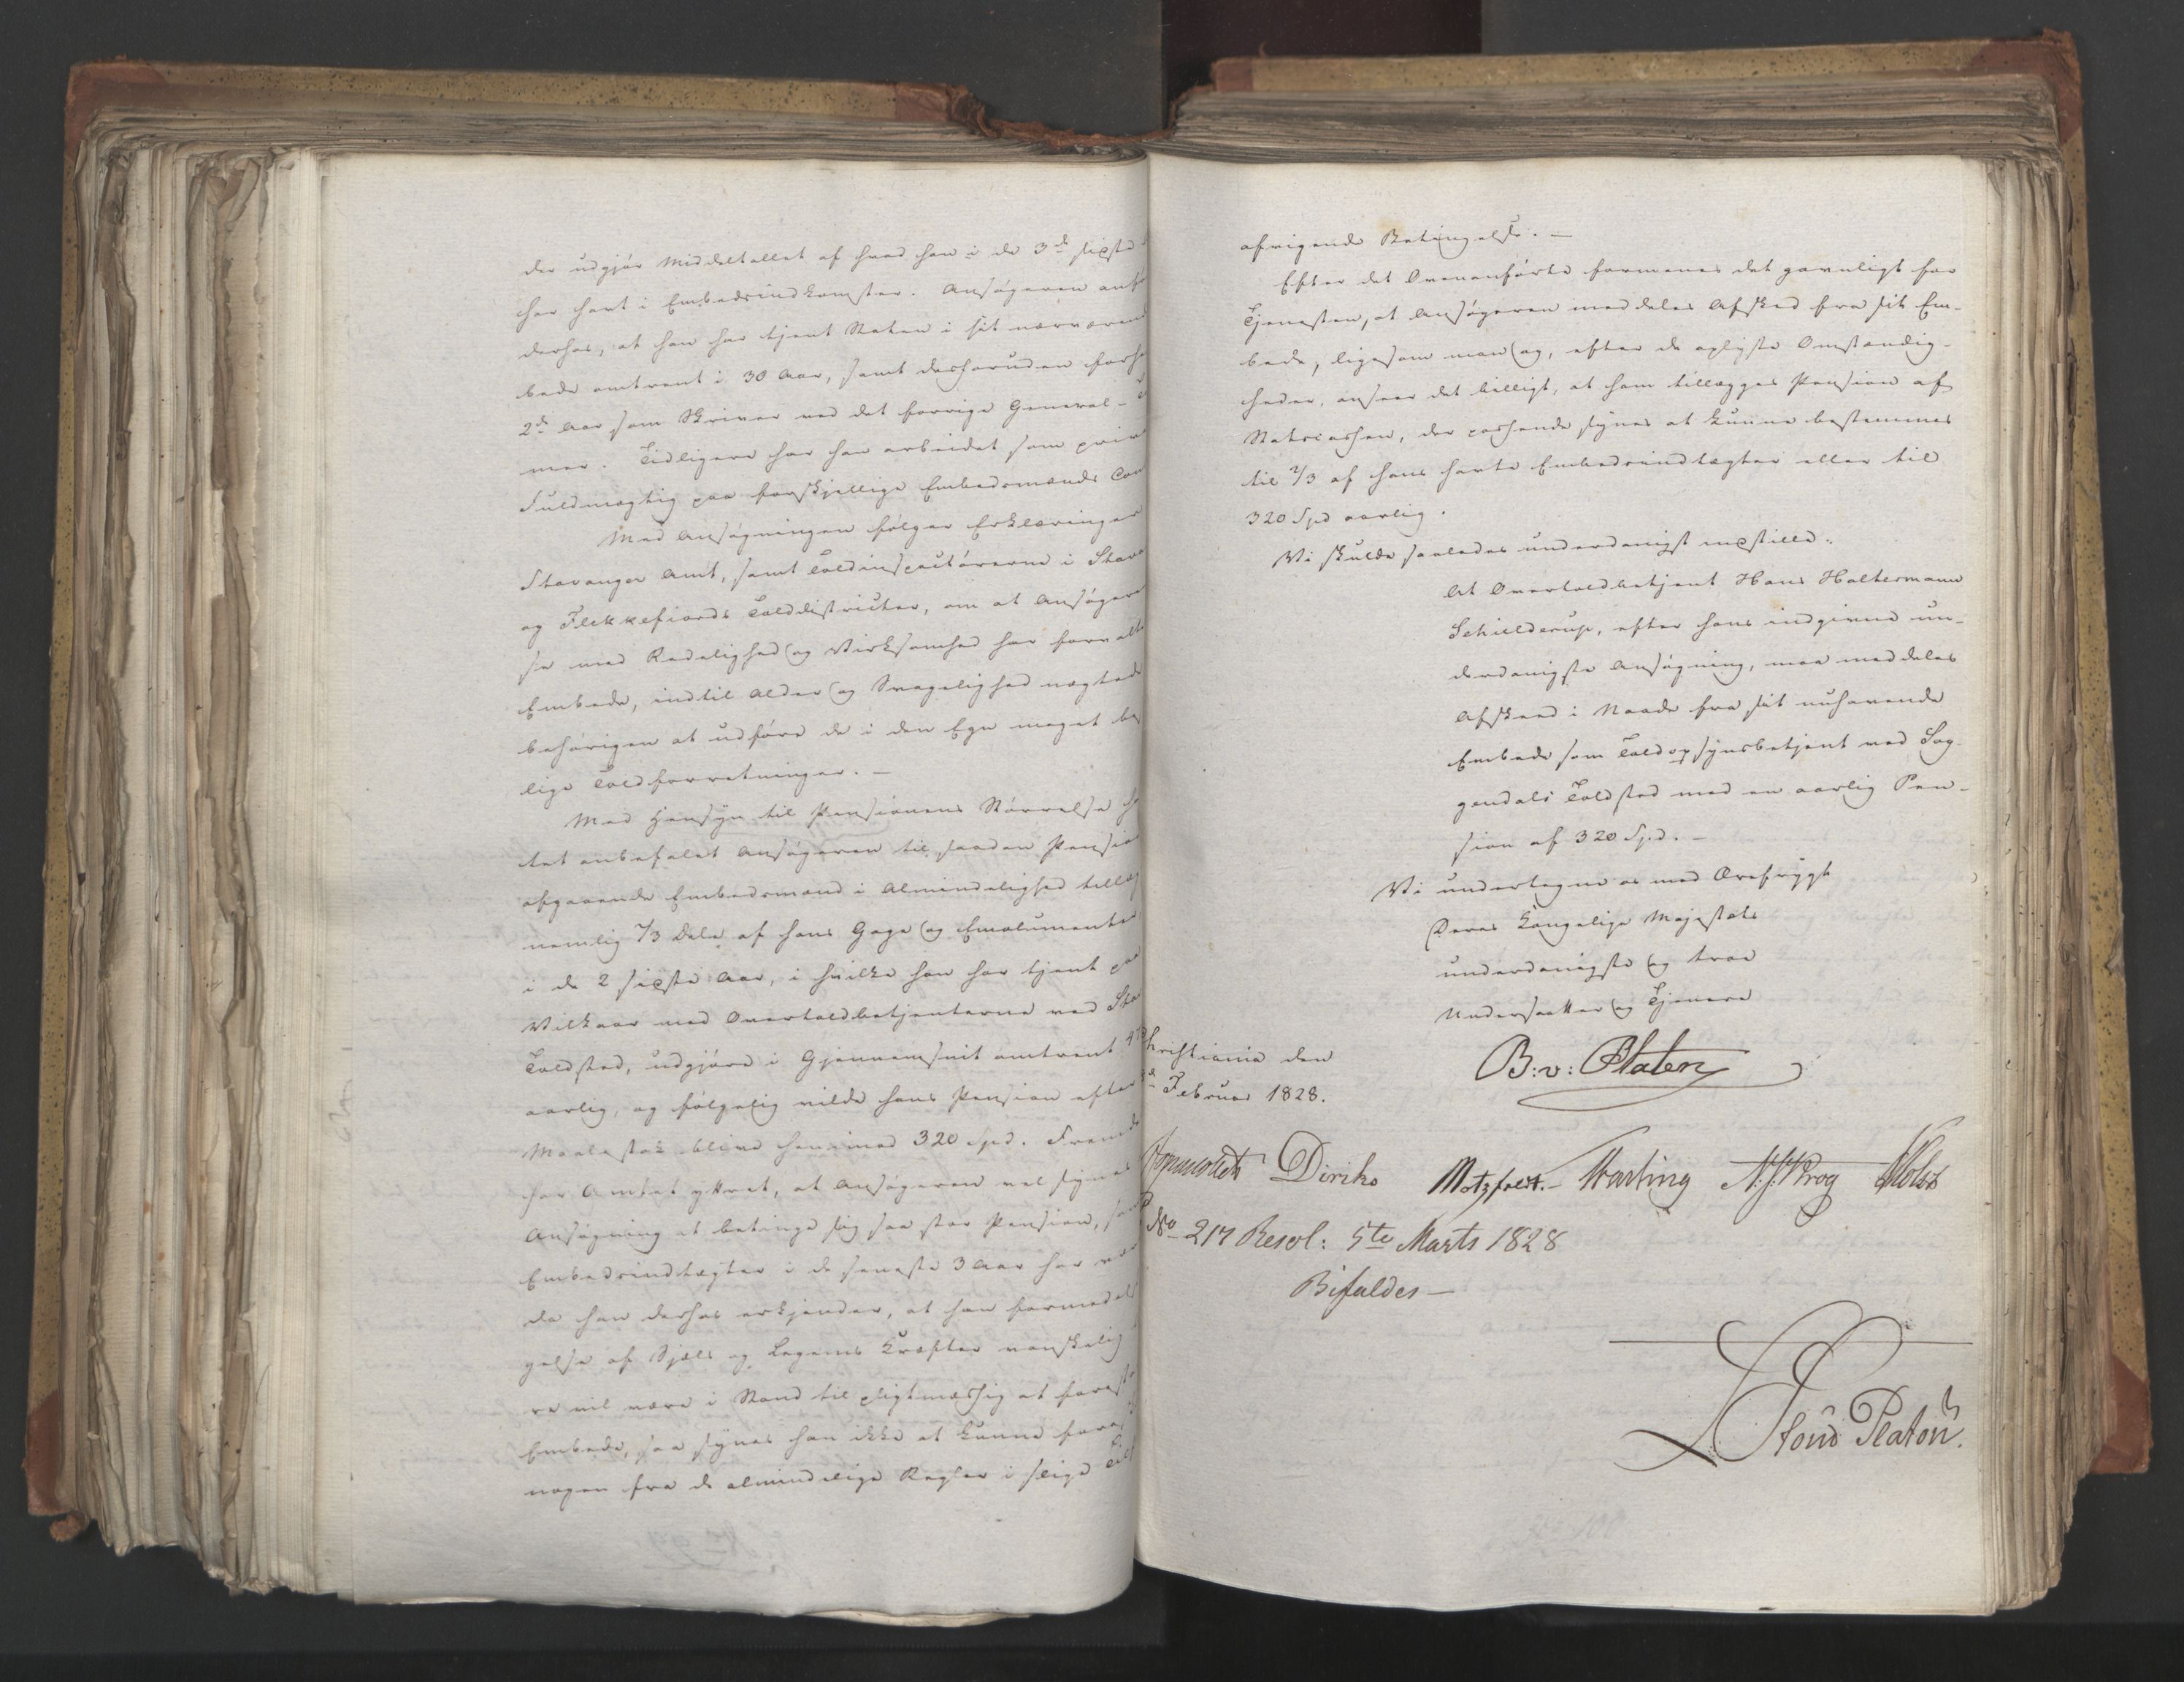 der udgjør Middeltallet af hvad han i de 3de sidste
har havt i Embedsindkomster. Ansøgeren anfø
derhos, at han har tjent Staten i sit nærværend
bede omtrent i 30 Aar, samt desforuden forhe
2de Aar som Skriver ved det forrige General-T
mer. Tidligere har han arbeidet som priva
Fuldmægtig paa forskjellige Embedsmænds Con
Med Ansøgningen følger Erklæringer
Stavanger Amt, samt Toldinspectørerne i Stava
og Flekkefiords Tolddistricter, om at Ansøgere
se med Redelighed og Virksomhed har forvalte
Embede, indtil Alder og Svagelighed nægtede
behørigen at udføre de i den Egn meget be
lige Toldforretninger. —
Med Hensyn til Pensionens Størrelse ha
tet anbefalet Ansøgeren til saadan Pensio
afgaaende Embedsmænd i Almindelighed tillæg
nemlig 2/3 Dele af hans Gage og Emolumenter
i de 2 sidste Aar, i hvilke han har tjent paa
Vilkaar med Overtoldbetjenterne ved Sta
Toldsted, udgjøre i Gjennemsnit omtrent 47
aarlig, og følgelig vilde hans Pension efter
Maalestok blive henimod 320 Spd. Fremde
har Amtet yttret, at Ansøgeren vel synes
Ansøgning at betinge sig saa stor Pension, som
Embedsindtægter i de seneste 3 Aar har vær
da han derhos erkjender, at han formedels
gelse af Sjæls og Legems Kræfter vanskelig
re vil være i Stand til pligtmæssig at forest
Embede, saa synes han ikke at kunne fore
nogen fra de almindelige Regler i slige Til
afvigende Betingelse. —
Efter det Ovenanførte formenes det gavnligt for
Tjenesten, at Ansøgeren meddeles Afsked fra sit Em-
bede, ligesom man og, efter de oplyste Omstændig-
heder, anseer det billigt, at ham tillægges Pension af
Statscassen, der passende synes at kunne bestemmes
til 2/3 af hans havte Embedsindtægter eller til
320 Spd aarlig.
Vi skulde saaledes underdanigst indstille:
At Overtoldbetjent Hans Holtermann
Schielderup, efter hans indgivne un-
derdanigste Ansøgning, maa meddeles
Afskeed i Naade fra sit nuhavende
Embede som Toldopsynsbetjent ved Sog-
gendals Toldsted med en aarlig Pen-
sion af 320 Spd. —
Vi undertegne os med Ærefrygt
Deres Kongelige Majestæts
underdanigste og troe
Undersaatter og Tjenere
B: v: Platen
hristiania den
Februar 1828.
Diriks Motzfeldt. — N. J. Krog Holst
No 217 Resol: 5te Marts 1828
Bifaldes —